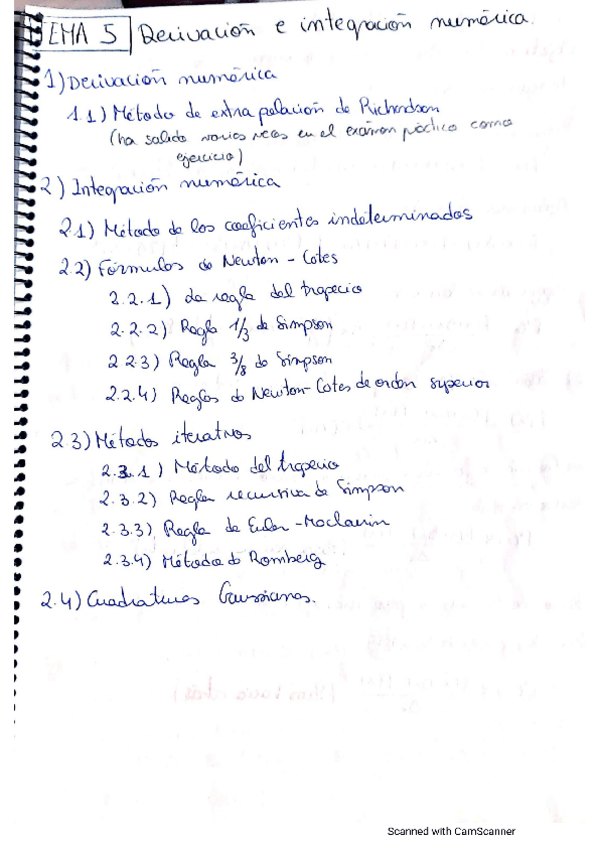 TEMA 5 Derivación e integración numérica.
1) Derivación numérica
1.1) Método de extrapolación de Richardson
(ha salido varias veces en el exámen práctico como
ejercicio)
2) Integración numérica
2.1) Método de los coeficientes indeterminados
2.2) Fórmulas de Newton-Cotes
2.2.1) La regla del trapecio
2.2.2) Regla 1/3 de Simpson
2.2.3) Regla 3/8 de Simpson
2.2.4) Reglas de Newton-Cotes de orden superior
2.3) Métodos iterativos
2.3.1) Método del trapecio
2.3.2) Regla recursiva de Simpson
2.3.3) Regla de Euler-Maclaurin
2.3.4) Método de Romberg
2.4) Cuadraturas Gaussianas.
Scanned with CamScanner